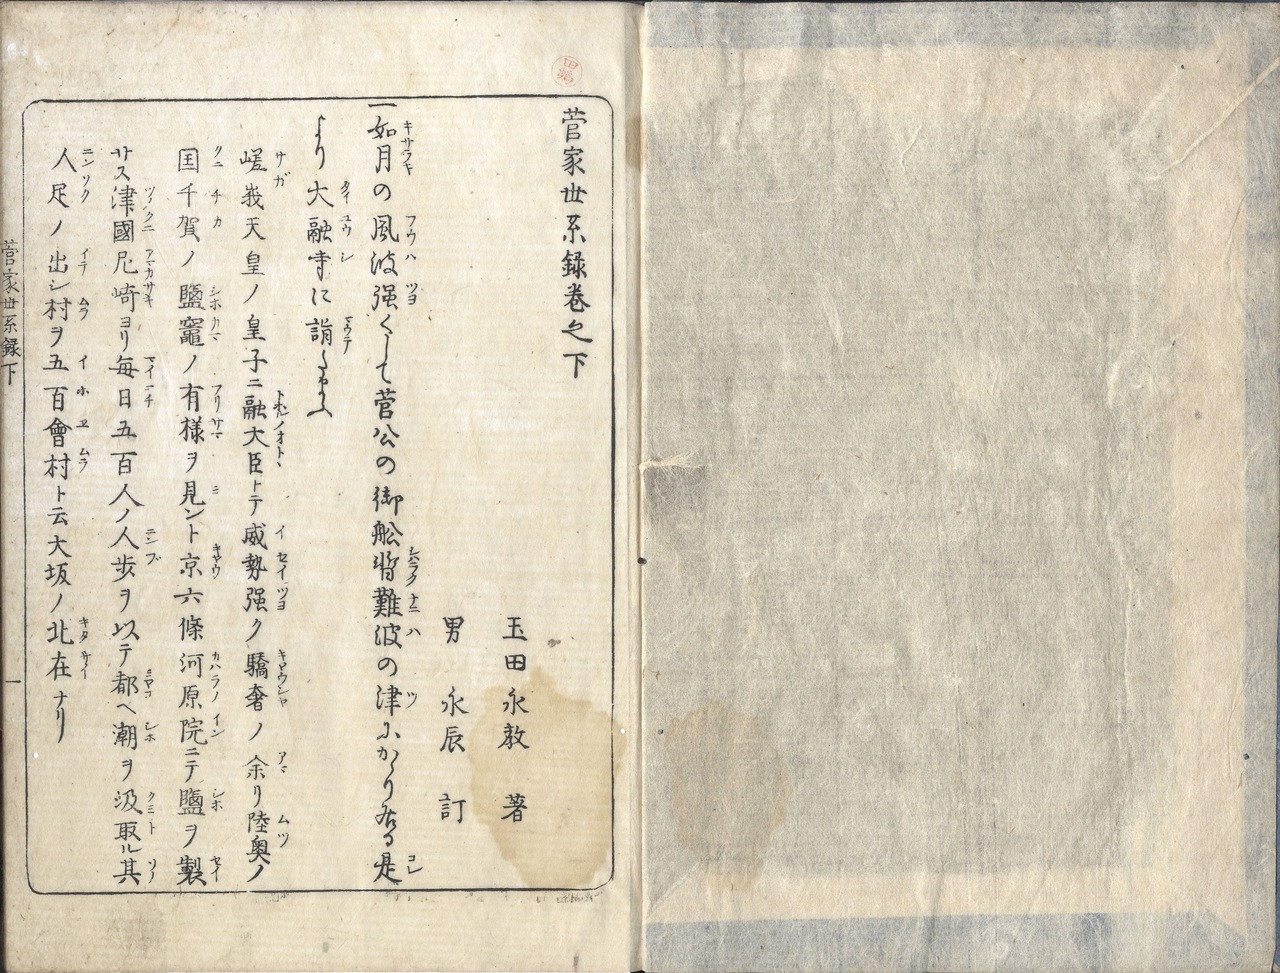 菅家世系録巻之下
玉田永教 著
男 永辰 訂
一如月の風波强くして菅公の御舩暫難波の津にかゝり居る是
より大融寺に詣たまふ
嵯峩天皇ノ皇子ニ融大臣トテ威勢强ク驕奢ノ余リ陸奥ノ
国千賀ノ鹽竈ノ有様ヲ見ント京六條河原院ニテ鹽ヲ製
サス津國尼崎ヨリ毎日五百人ノ人歩ヲ以テ都ヘ潮ヲ汲取ル其
人足ノ出シ村ヲ五百會村ト云大坂ノ北在ナリ
菅家世系録下
一